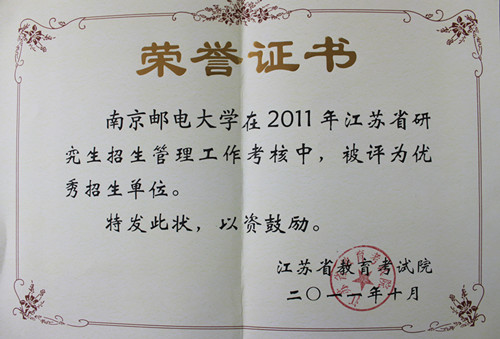 荣誉证书
南京邮电大学在2011年江苏省研
究生招生管理工作考核中，被评为优
秀招生单位。
特发此状，以资鼓励。
江苏省教育考试院
二〇一一年十月